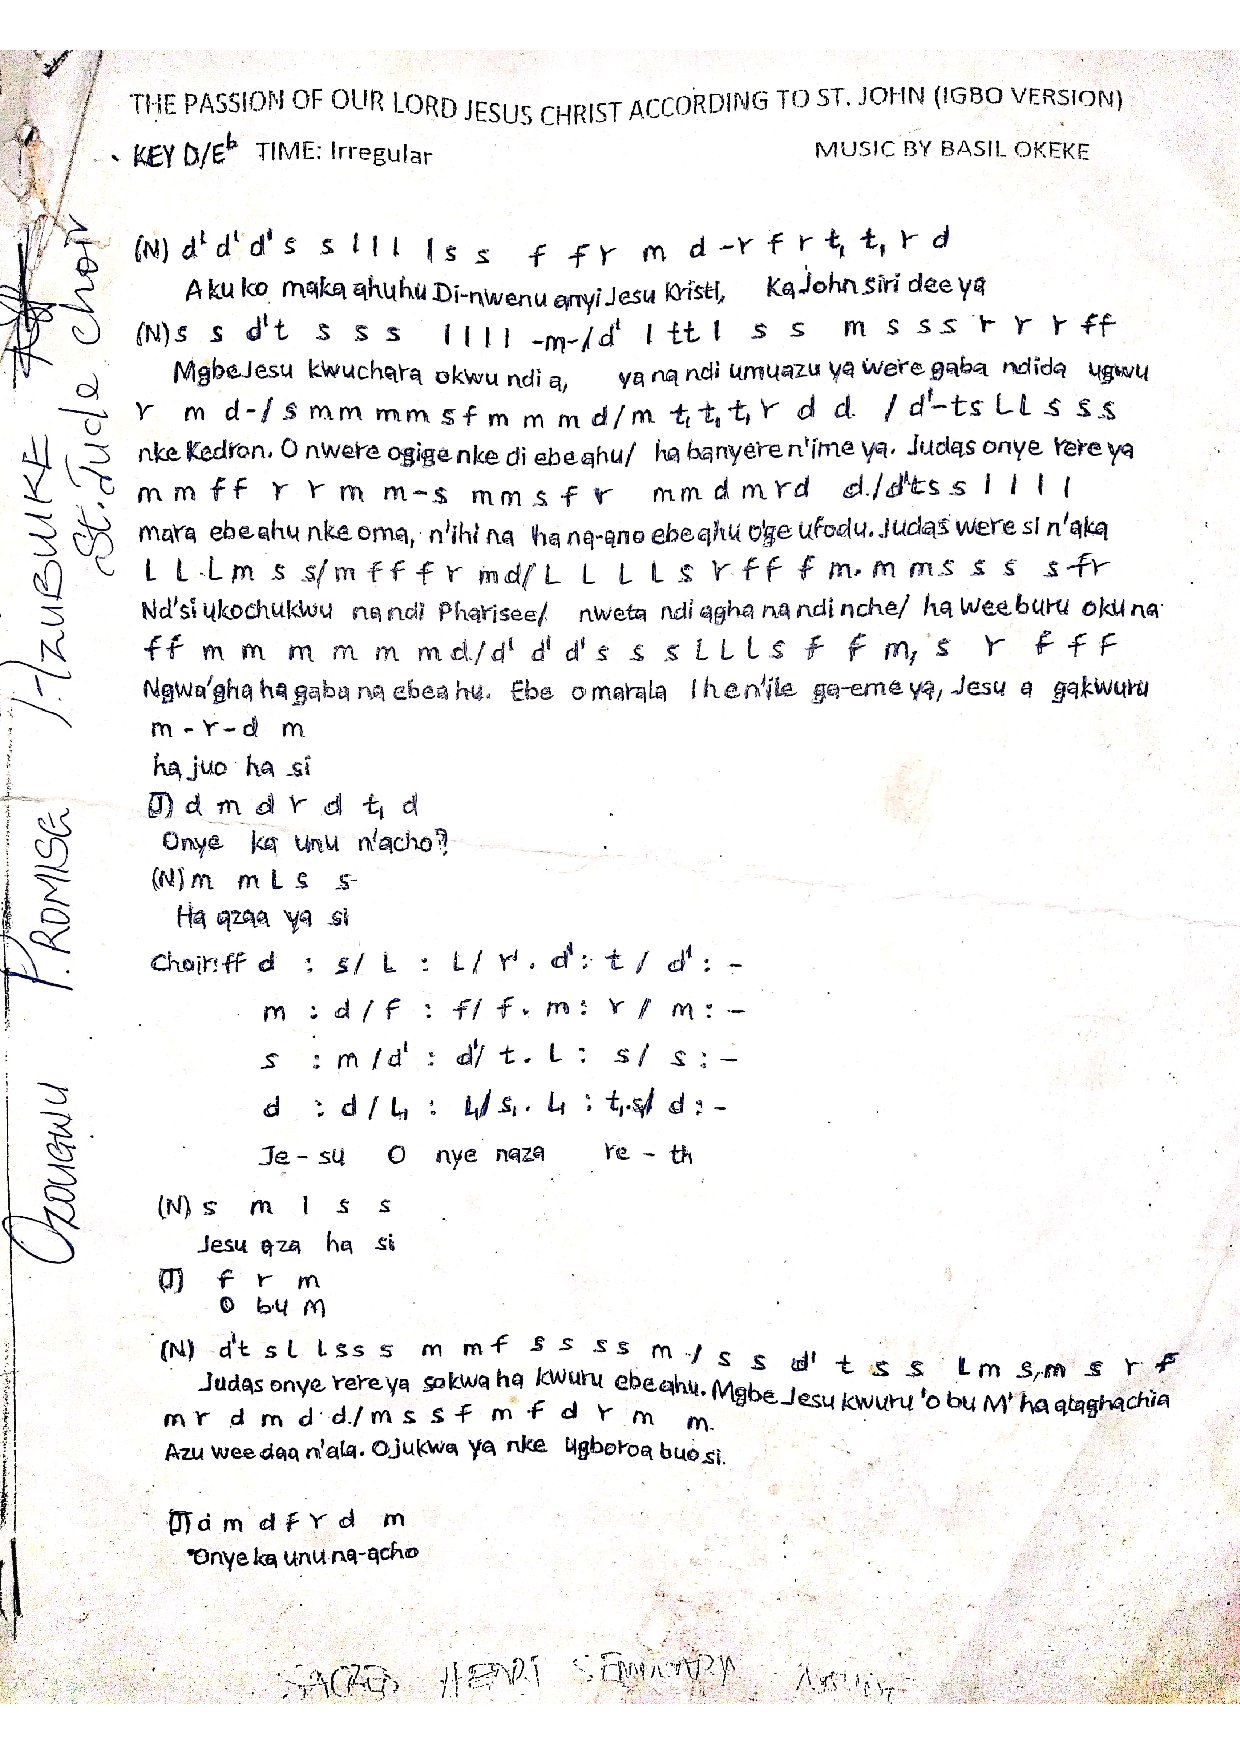 THE PASSION OF OUR LORD JESUS CHRIST ACCORDING TO ST. JOHN (IGBO VERSION)
KEY D/Eb TIME: Irregular MUSIC BY BASIL OKEKE
(N) d' d' d' s s l l l l s s f f r m d -r f r t, t, r d
Akuko maka ahuhu Di-nwenu anyi Jesu Kristi, Ka John siri dee ya
(N) s s d't s s s l l l l -m-/d' l tt l s s m s s s r r r ff
Mgbe Jesu kwuchara okwu ndi a, ya na ndi umuazu ya were gaba ndida ugwu
r m d-/s mm mm s f m m m d/m t, t, t, r d d. /d'-ts L L s s s
nke Kedron. O nwere ogige nke di ebe ahu/ ha banyere n'ime ya. Judas onye rere ya
m m ff r r m m-s mm s f r mm d m rd d./d'ts s l l l l
mara ebe ahu nke oma, n'ihi na ha na-ano ebe ahu o'ge ufodu. Judas were si n'aka
L L.L m s s/m f f f r md/L L L L s r f f f m. m m s s s s-fr
Nd'si ukochukwu na ndi Pharisee/ nweta ndi agha na ndi nche/ ha wee buru oku na
ff m m m m m md./d' d' d' s s s L L L s f f m, s r f f f
Ngwa'gha ha gaba na ebea hu. Ebe o marala Ihe n'ile ga-eme ya, Jesu a gakwuru
m - r - d m
ha juo ha si
(J) d m d r d t, d
Onye ka unu n'acho?
(N) m m L s s-
Ha azaa ya si
Choir: ff d : s/ L : L/ r'. d': t / d': -
m : d / f : f/ f. m: r / m: -
s : m /d' : d'/ t. L: s/ s: -
d : d/ L, : L,/s,. L, : t,.s,/ d: -
Je-su O nye naza re-th
(N) s m l s s
Jesu aza ha si
(J) f r m
O bu M
(N) d't s L L s s s m m f s s s s m / s s d' t s s L m s, m s r f
Judas onye rere ya sokwa ha kwuru ebe ahu. Mgbe Jesu kwuru 'o bu M' ha alaghachia
m r d m d d./m s s f m f d r m m.
Azu wee daa n'ala. Ojukwa ya nke ugboroa buo si.
(J) d m d f r d m
"Onye ka unu na-acho
SACRED HEART SEMINARY
OZOUGWU PROMISE
St. Jude choir